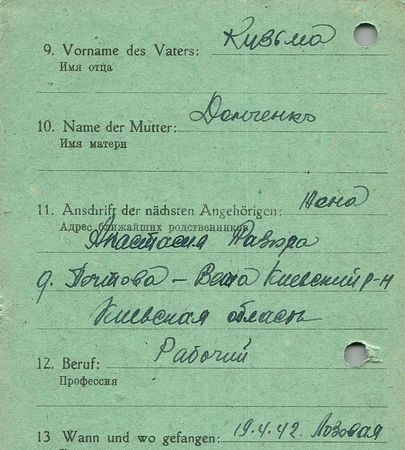 9. Vorname des Vaters: Кузьма
Имя отца
10. Name der Mutter: Донченко
Имя матери
11. Anschrift der nächsten Angehörigen: Жена
Адрес ближайших родственников
Анастасия
д. Почтова – Вета Киевский р-н
Киевская область
12. Beruf: Рабочий
Профессия
13 Wann und wo gefangen: 19.4.42. Лозовая